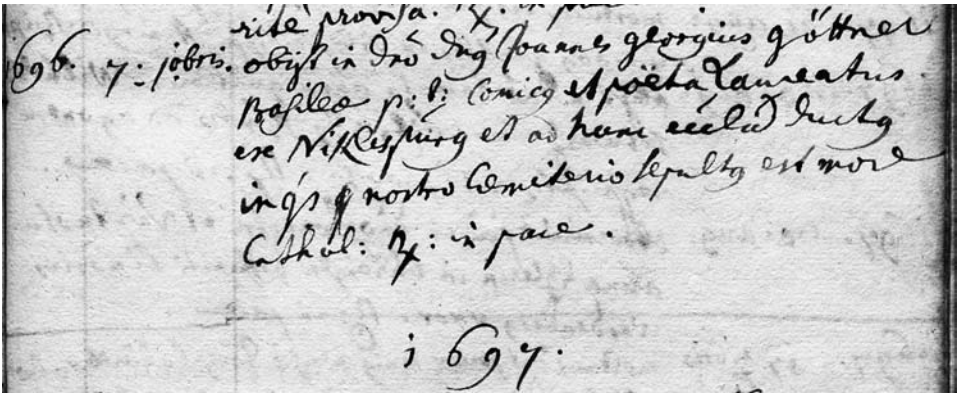 rite provisa. R. in pace
1696. 7. jobris. obijt in dnō dng Joannes georgius göttner
Basileæ p: t: Comicg et poëta Laureatus.
ex Niklespurg et ad hanc ecclā ductg
in nostro Cœmiterio sepultg est more
Cathol: R: in pace.
1697.